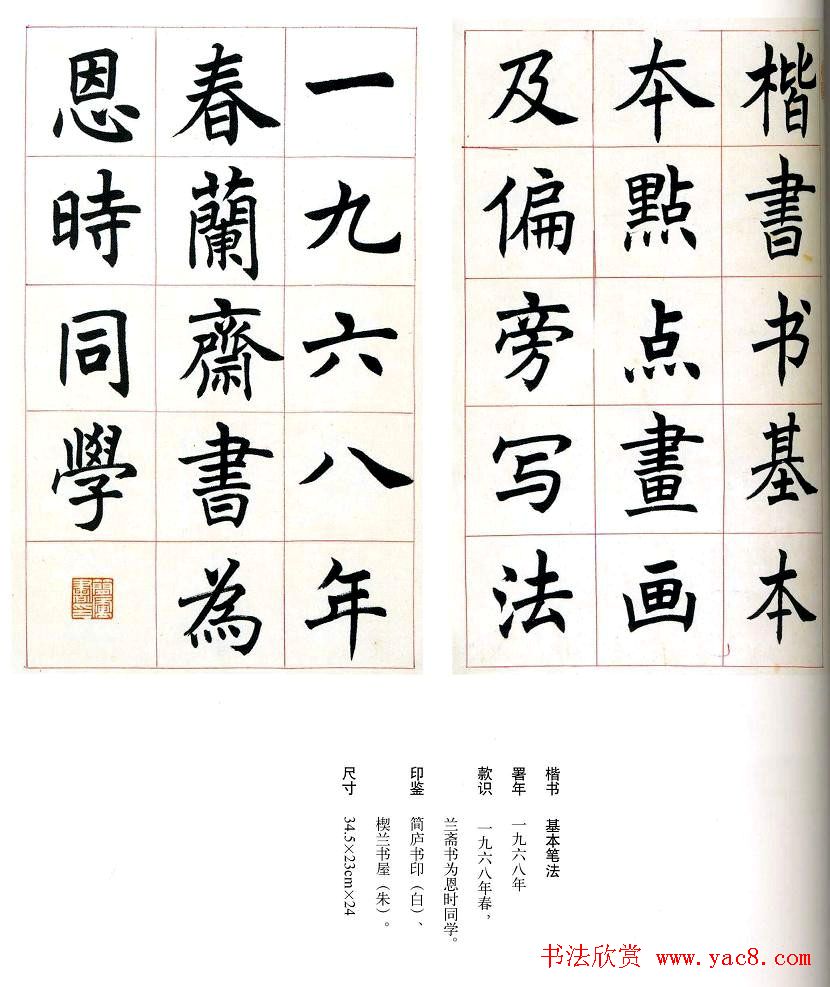 楷書书基本
本點点畫画
及偏旁写法
一九六八年
春蘭齋書為
恩時同學
楷书 基本笔法
署年 一九六八年
款识 一九六八年春，
兰斋书为恩时同学。
印鉴 简庐书印（白）、
楔兰书屋（朱）。
尺寸 34.5×23cm×24
书法欣赏 www.yac8.com